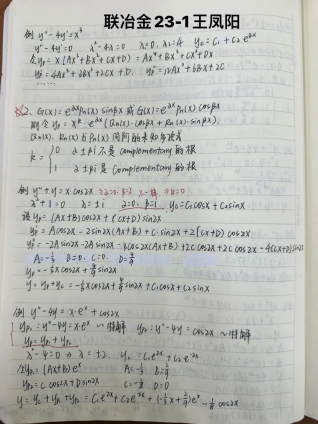 联冶金23-1王凤阳
例 y''-4y'=x³
y''-4y'=0 λ²-4λ=0 λ=0, λ=4 y_c=C₁+C₂e^{4x}
令y_p=x(Ax³+Bx²+Cx+D)=Ax⁴+Bx³+Cx²+Dx
y_p'=4Ax³+3Bx²+2Cx+D. y_p''=12Ax²+6Bx+2C
2. G(x)=e^{αx}P_n(x)sinβx 或 G(x)=e^{αx}P_n(x)cosβx
则令y_p=x^k·e^{αx}(Q_n(x)·cosβx+R_n(x)·sinβx)
Q_n(x). R_n(x)与P_n(x)同阶的未知多项式
k={0 α±βi不是complementary的根
1 α±βi是complementary的根
例 y''+y=x·cos2x
λ²+1=0 λ=±i y_c=C₁cosx+C₂sinx
设y_p=(Ax+B)cos2x+(Cx+D)sin2x
y_p'=Acos2x-2sin2x(Ax+B)+C·sin2x+2(Cx+D)cos2x
y_p''=-2Asin2x-2Asin2x-4cos2x(Ax+B)+2Ccos2x+2Ccos2x-4(Cx+D)sin2x
A=-⅓ B=0. C=0. D=4/9
y_p=-⅓xcos2x+4/9sin2x
y=y_p+y_c=-⅓xcos2x+4/9sin2x+C₁cosx+C₂sinx
例 y''-4y=x·e^x+cos2x
y_{p1}:y''-4y=x·e^x~特解 y_{p2}:y''-4y=cos2x~特解
y_p=y_{p1}+y_{p2}
λ²-4=0⇒λ=±2. y_c=C₁e^{2x}+C₂e^{-2x}
令y_{p1}=(Ax+B)e^x A=-⅓
y_{p2}=Ccos2x+Dsin2x C=-⅛ D=0